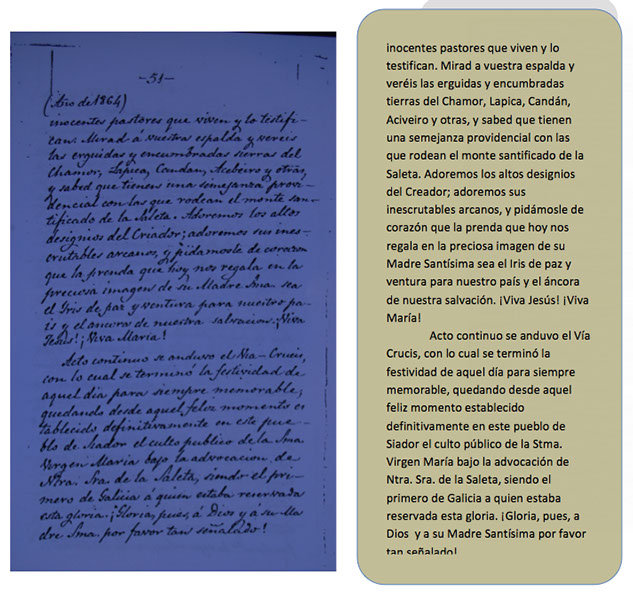 -51-
(Año de 1864)
inocentes pastores que viven y lo testifi-
can. Mirad á vuestra espalda y vereis
las erguidas y encumbradas sierras del
Chamor, Zapica, Candan, Acebeiro y otras,
y sabed que tienen una semejanza provi-
dencial con las que rodean el monte san-
tificado de la Saleta. Adoremos los altos
designios del Criador; adoremos sus ines-
crutables arcanos, y pidamosle de corazon
que la prenda que hoy nos regala en la
preciosa imagen de su Madre Sma. sea
el Iris de paz y ventura para nuestro pa-
is y el ancora de nuestra salvacion. ¡Viva
Jesus! ¡Viva Maria!
Acto continuo se anduvo el Via-Crucis,
con lo cual se terminó la festividad de
aquel dia para siempre memorable,
quedando desde aquel feliz momento es
tablecido definitivamente en este pue-
blo de Siador el culto publico de la Sma
Virgen Maria bajo la advocacion de
Ntra. Sra. de la Saleta, siendo el pri-
mero de Galicia á quien estaba reservada
esta gloria. ¡Gloria, pues, á Dios y a su Ma
dre Sma. por favor tan señalado!
inocentes pastores que viven y lo
testifican. Mirad a vuestra espalda y
veréis las erguidas y encumbradas
tierras del Chamor, Lapica, Candán,
Aciveiro y otras, y sabed que tienen
una semejanza providencial con las
que rodean el monte santificado de la
Saleta. Adoremos los altos designios
del Creador; adoremos sus
inescrutables arcanos, y pidámosle de
corazón que la prenda que hoy nos
regala en la preciosa imagen de su
Madre Santísima sea el Iris de paz y
ventura para nuestro país y el áncora
de nuestra salvación. ¡Viva Jesús! ¡Viva
María!
Acto continuo se anduvo el Vía
Crucis, con lo cual se terminó la
festividad de aquel día para siempre
memorable, quedando desde aquel
feliz momento establecido
definitivamente en este pueblo de
Siador el culto público de la Stma.
Virgen María bajo la advocación de
Ntra. Sra. de la Saleta, siendo el
primero de Galicia a quien estaba
reservada esta gloria. ¡Gloria, pues, a
Dios y a su Madre Santísima por favor
tan señalado!